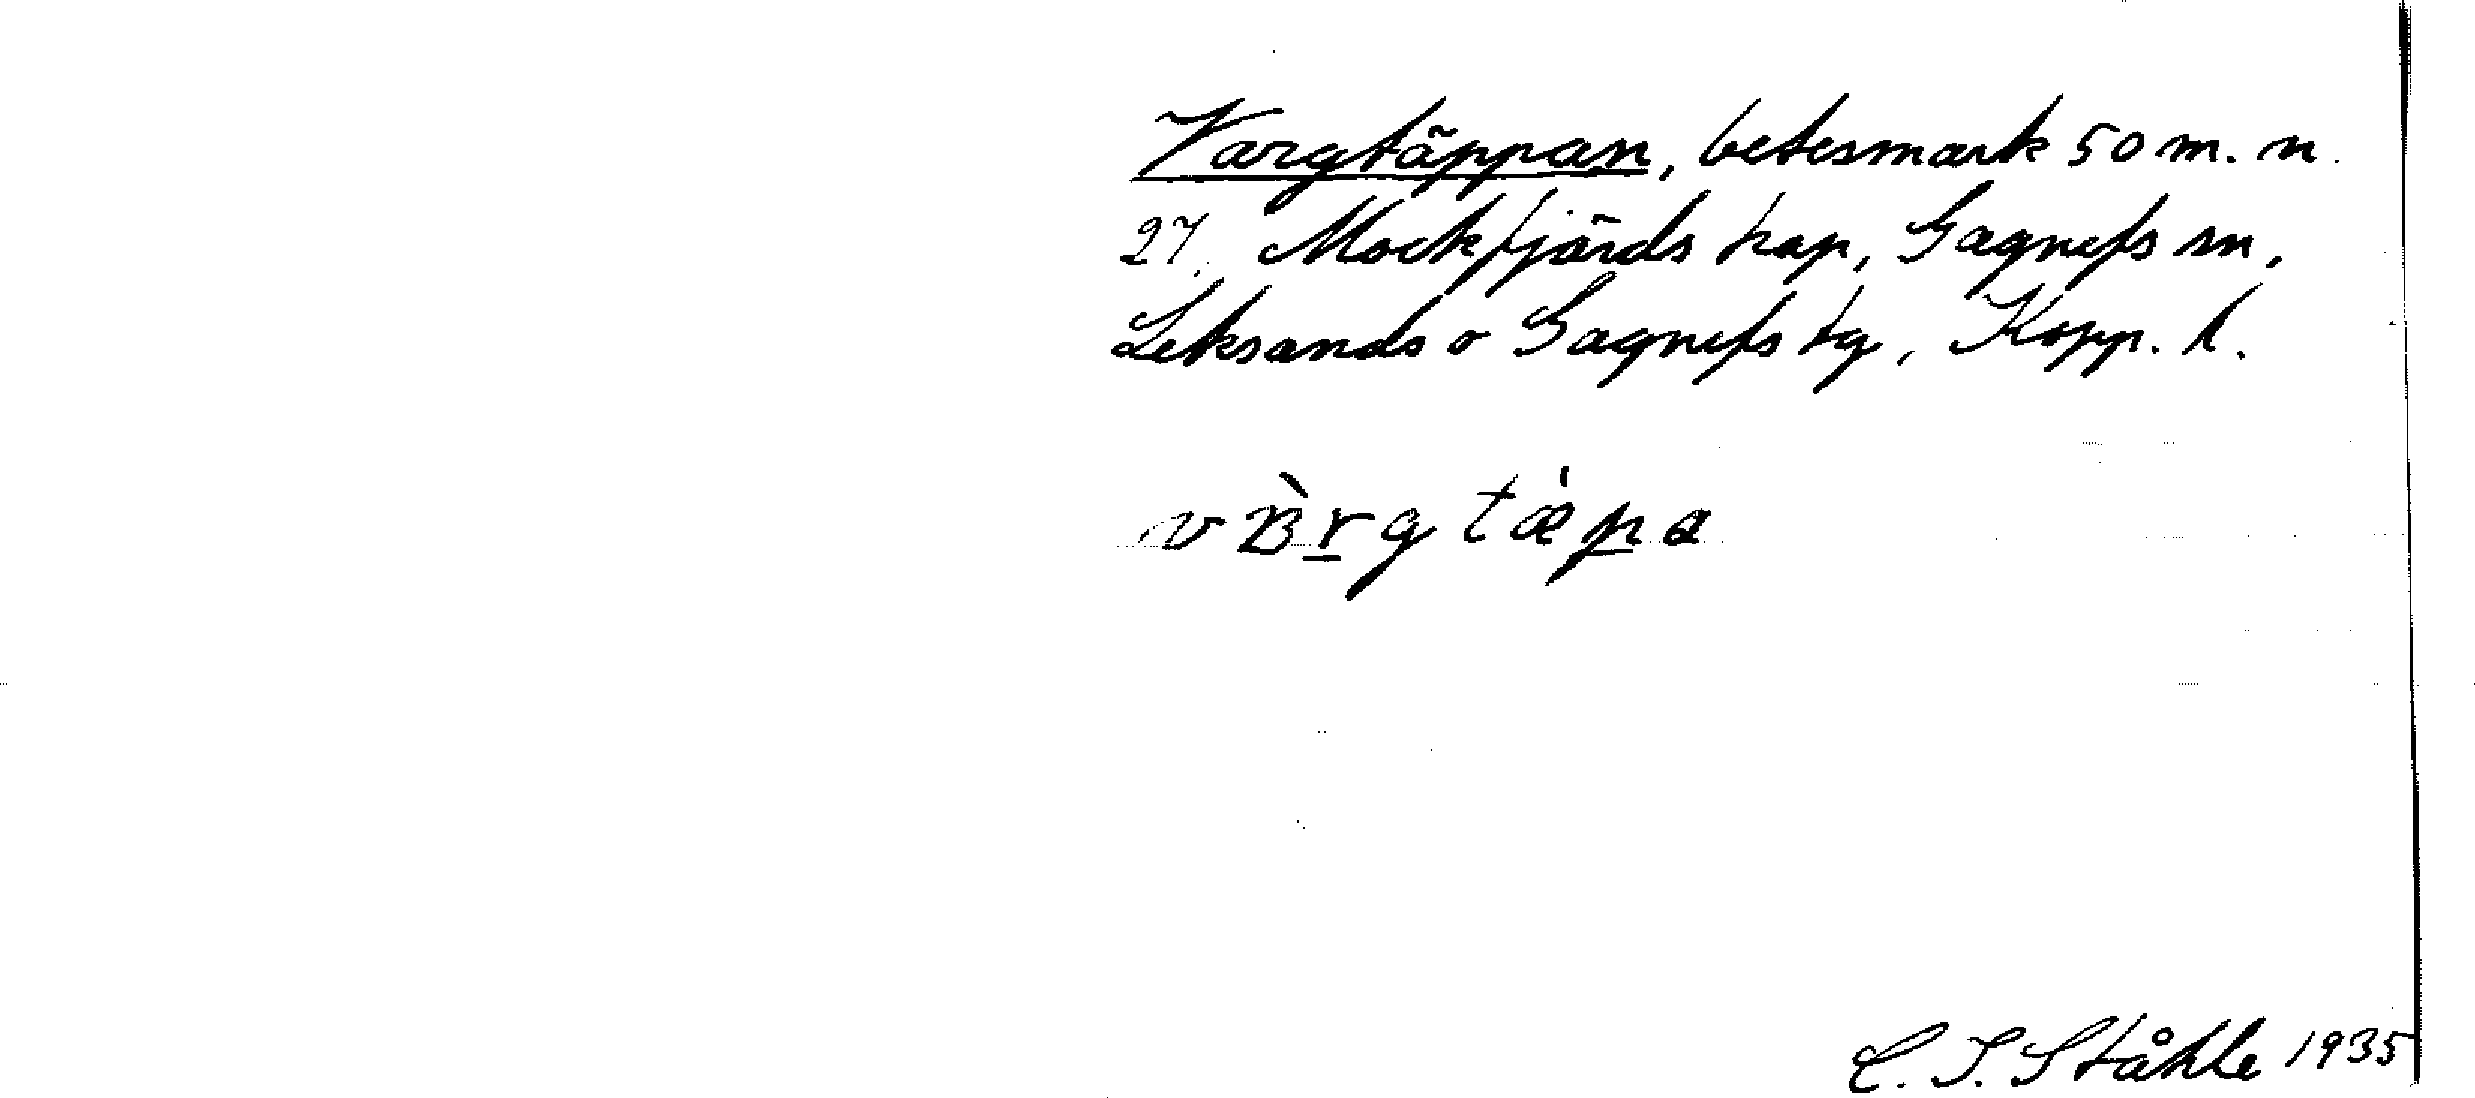 Vargtäppan, betesmark 50 m. n.
27. Mockfjärds kap, Gagnefs sn,
Leksands o Gagnefs tg, Kopp. l.
C. I. Ståhle 1935